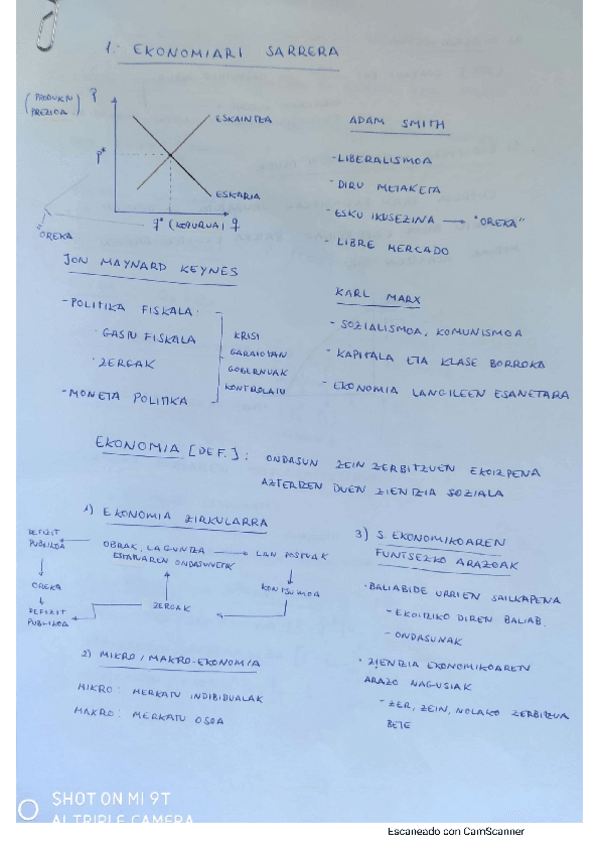 1.- EKONOMIARI SARRERA
(PRODUKTU PREZIOA) P
ESKAINTZA
P*
ESKARIA
q* (KOPURUA) q
"OREKA"
ADAM SMITH
- LIBERALISMOA
- DIRU METAKETA
- ESKU IKUSEZINA → "OREKA"
- LIBRE MERCADO
JON MAYNARD KEYNES
- POLITIKA FISKALA:
· GASTU FISKALA
· ZERGAK
- MONETA POLITIKA
KRISI
GARAIOTAN
GOBERNUAK
KONTROLATU
KARL MARX
- SOZIALISMOA, KOMUNISMOA
- KAPITALA ETA KLASE BORROKA
- EKONOMIA LANGILEEN ESANETARA
EKONOMIA [DEF.]: ONDASUN ZEIN ZERBITZUEN EKOIZPENA
AZTERTZEN DUEN ZIENTZIA SOZIALA
1) EKONOMIA ZIRKULARRA
DEFIZIT
PUBLIKOA
OBRAK, LAGUNTZA → LAN POSTUAK
ESTATUAREN ONDASUNETIK
OREKA
KONTSUMOA
DEFIZIT
PUBLIKOA
ZERGAK
2) MIKRO / MAKRO-EKONOMIA
MIKRO: MERKATU INDIBIDUALAK
MAKRO: MERKATU OSOA
3) S. EKONOMIKOAREN
FUNTSEZKO ARAZOAK
· BALIABIDE URRIEN SAILKAPENA
- EKOIZTIKO DIREN BALIAB.
- ONDASUNAK
· ZIENTZIA EKONOMIKOAREN
ARAZO NAGUSIAK
- ZER, ZEIN, NOLAKO ZERBITZUA
BETE
SHOT ON MI 9T
AI TRIPLE CAMERA
Escaneado con CamScanner